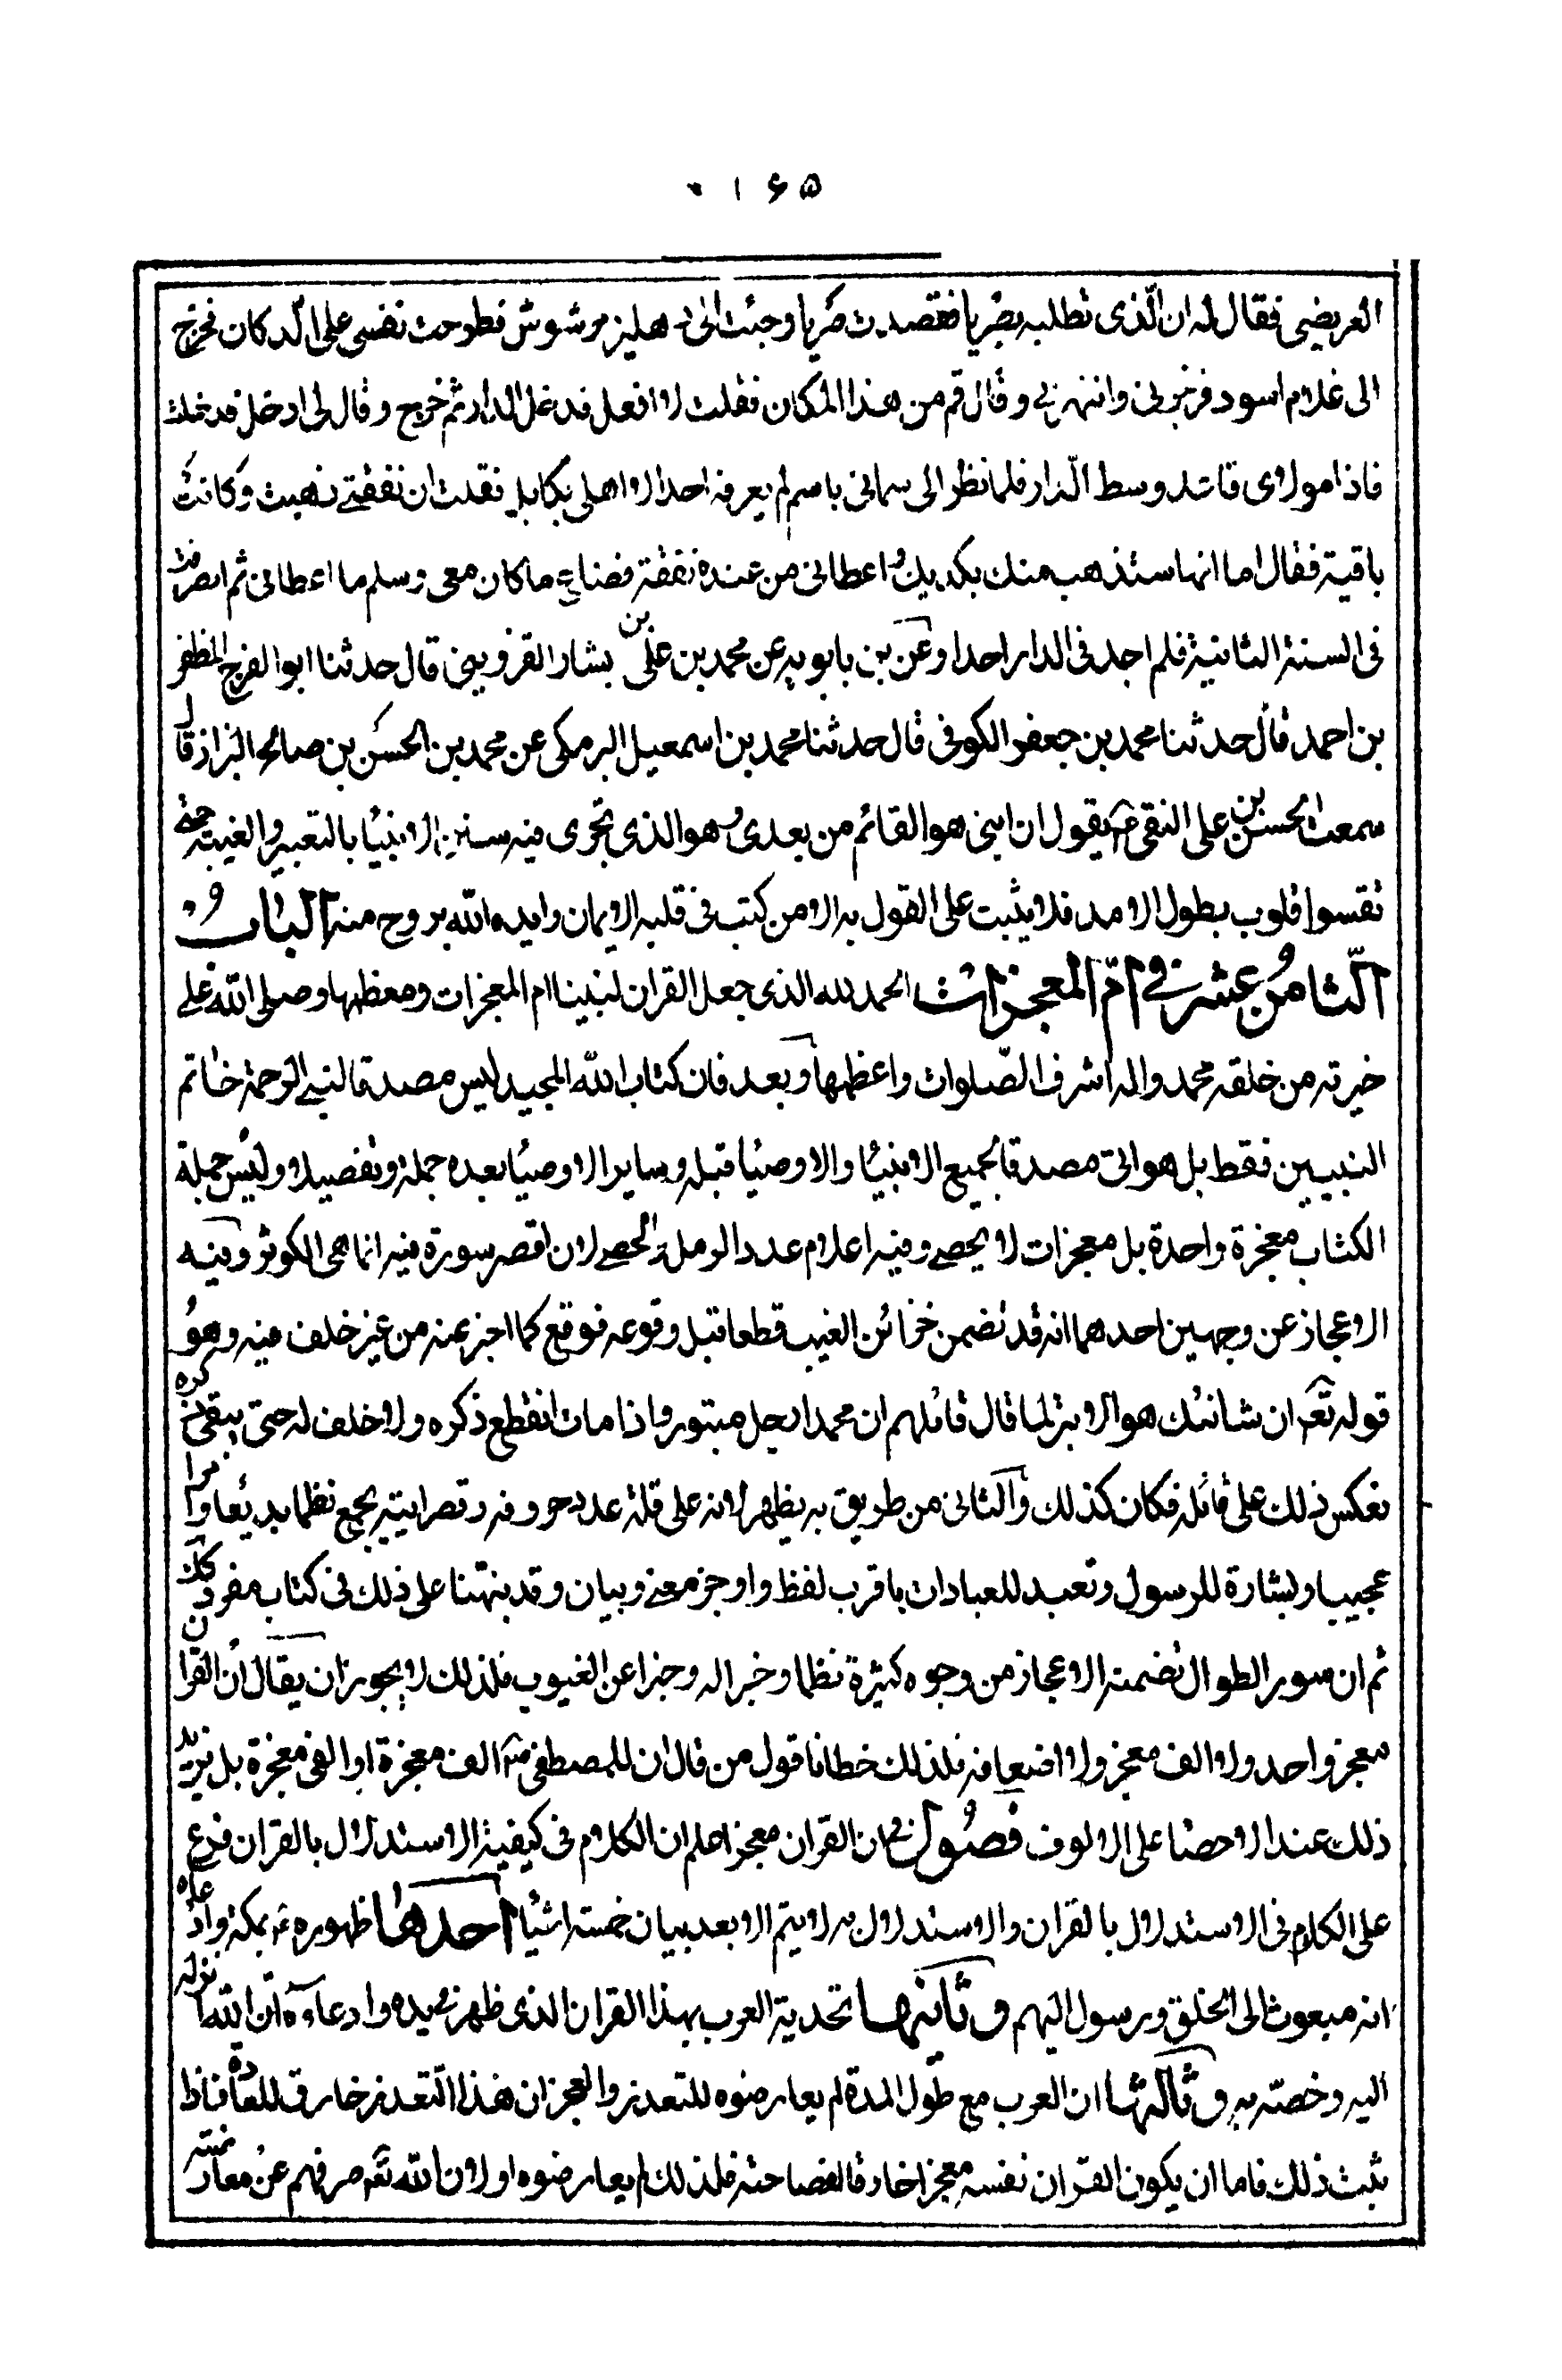 ۱۶۵
العريضى فقال له ان الّذى تطلبه بصريا فقصدت صريا وجئت الى دهليز مرشوش فطرحت نفسى على الدكان فخرج
الى غلام اسود فزجرنى وانتهرنى وقال قم من هذا المكان فقلت لا افعل فدخل الدار ثم خرج وقال لى ادخل فدخلت
فاذا مولاى قاعد وسط الدار فلما نظر الى سمانى باسم لم يعرفه احد الا اهلى بكابل فقلت ان نفقتى ذهبت وكانت
باقية فقال اما انها ستذهب منك بكذبك واعطانى من عنده نفقة فضاع ما كان معى وسلم ما اعطانى ثم انصرفت
فى السنة الثانية فلم اجد فى الدار احدا وعن بن بابويه عن محمد بن على بن بشار القزوينى قال حدثنا ابو الفرج المظفر
بن احمد قال حدثنا محمد بن جعفر الكوفى قال حدثنا محمد بن اسمعيل البرمكى عن محمد بن الحسن بن صالح البزاز قال
سمعت الحسن بن على النقى ع يقول ان ابنى هو القائم من بعدى وهو الذى تجرى فيه سنن الانبيا بالتعبير والغيبة حتى
تقسوا قلوب بطول الامد فلا يثبت على القول به الا من كتب فى قلبه الايمان وايده الله بروح منه الباب
الثامن عشر فى امّ المعجزات الحمد لله الذى جعل القران لنبينا ام المعجزات ومعظمها وصلى الله على
خيرته من خلقه محمد واله اشرف الصّلوات واعظمها وبعد فان كتاب الله المجيد ليس مصدقا لنبى الرحمة خاتم
النبيين فقط بل هو الى مصدقا لجميع الانبيا والاوصيا قبله وساير الاوصيا بعده جملة وتفصيلا وليس جملة
الكتاب معجزة واحدة بل معجزات لا يحصى وفيه اعلام عدد الرمل والحصى لان اقصر سورة فيه انما هى الكوثر وفيه
الاعجاز عن وجهين احدهما انه قد تضمن خزائن الغيب قطعا قبل وقوعه فوقع كما اخبر عنه من غير خلف فيه وهو
قوله تعه ان شانئك هو الابتر لما قال قائلهم ان محمدا رجل مبتور واذا مات انقطع ذكره ولا خلف له حتى يبقى ذكره
فعكس ذلك على قائله فكان كذلك والثانى من طريق به يظهر لانه على قلة عدد حروفه وقصر ايته يجمع نظما بديعا وامرا
عجيبا وبشارة للرسول وتعبد للعبادات باقرب لفظ واوجز معنى وبيان وقد نبهتنا على ذلك فى كتاب مفرد لذلك
ثم ان سور الطوال تضمنت الاعجاز من وجوه كثيرة نظما وخبر اله وخبرا عن الغيوب فلذلك لا يجوز ان يقال ان القران
معجز واحد ولا الف معجز ولا اضعافه فلذلك خطانا قول من قال ان للمصطفى ص الف معجزة او الفى معجزة بل تزيد
ذلك عند الاحصا على الالوف فصول فى ان القران معجز اعلم ان الكلام فى كيفية الاستدلال بالقران فرع
على الكلام فى الاستدلال بالقران والاستدلال به لا يتم الا بعد بيان خمسة اشيا احدها ظهوره ع بمكة وادعاه
انه مبعوث الى الخلق ورسول اليهم وثانيها تحدية العرب بهذا القران الذى ظهر فى يده وادعاءه ان الله انزله
اليه وخصّه به وثالثها ان العرب مع طول المدة لم يعارضوه للتعذر والعجز ان هذا التعذر خارق للعادة فاذا
ثبت ذلك فاما ان يكون القران نفسه معجزا خارقا لفصاحته فلذلك لم يعارضوه او لان الله تعه صرفهم عن معارضته